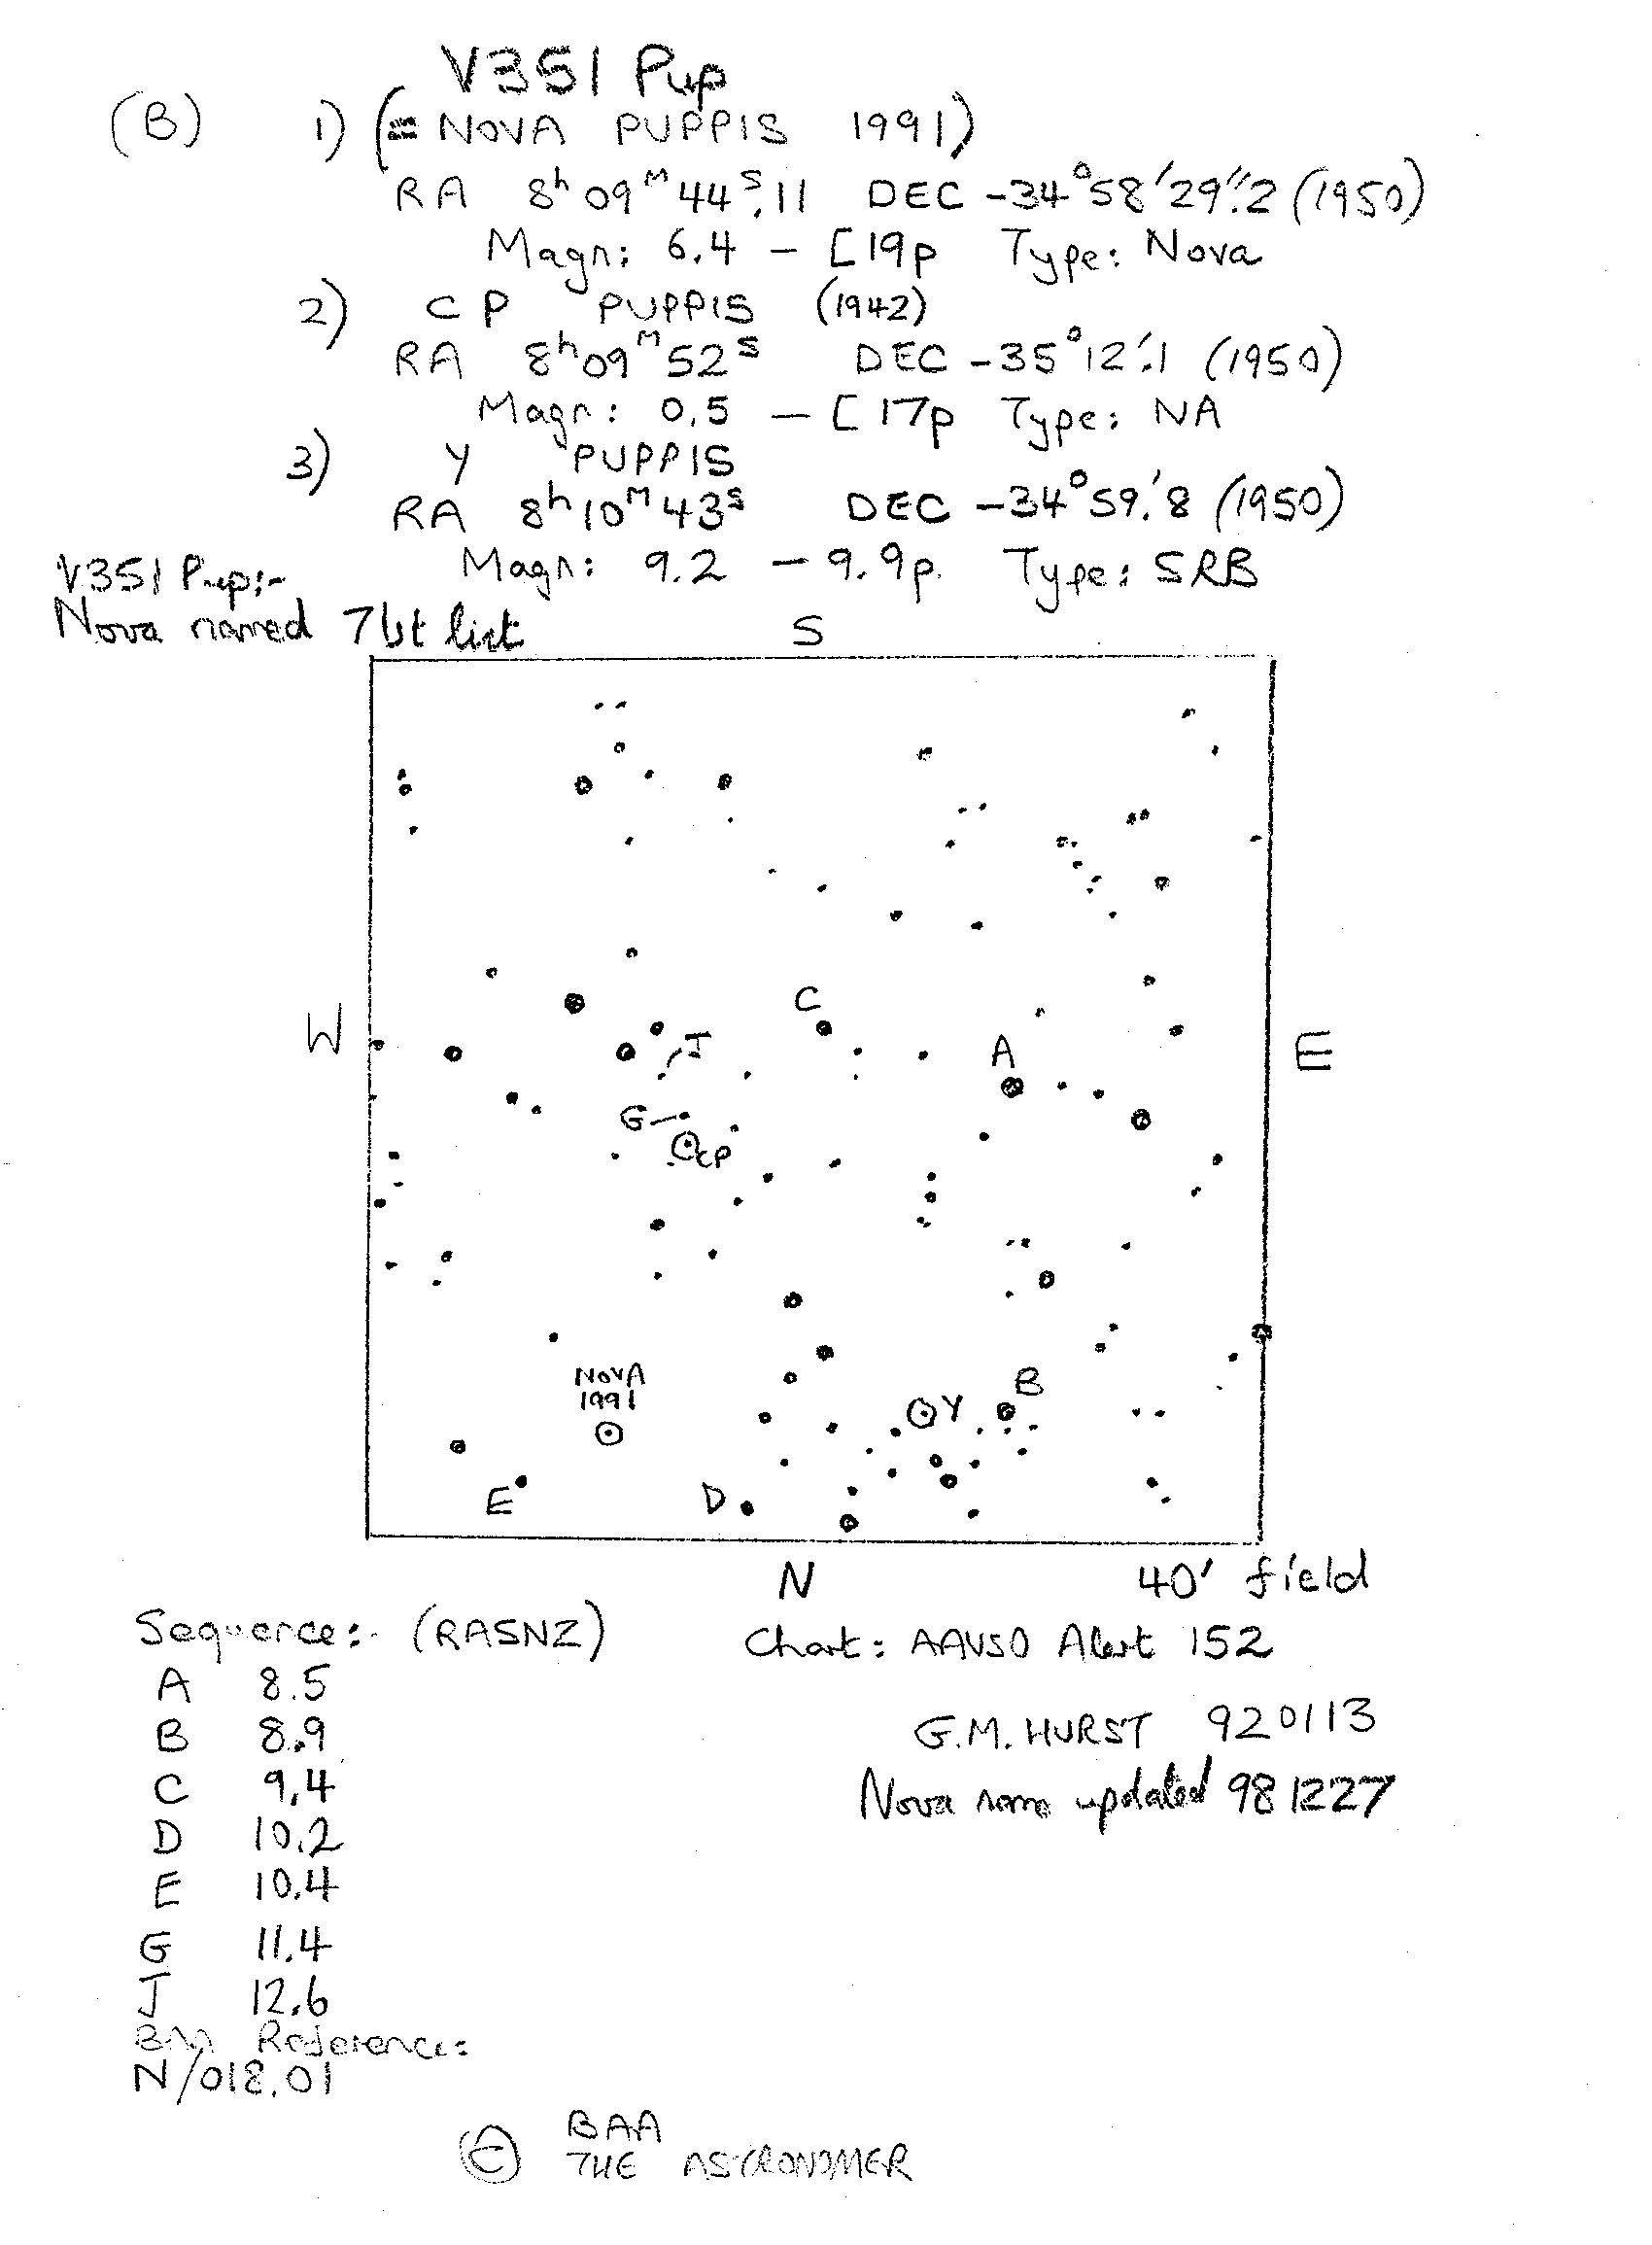 V351 Pup
(B) 1) (= NOVA PUPPIS 1991)
RA 8h 09M 44s.11 DEC -34°58'29".2 (1950)
Magn: 6.4 - [19p Type: Nova
2) CP PUPPIS (1942)
RA 8h 09M 52s DEC -35°12'.1 (1950)
Magn: 0.5 - [17p Type: NA
3) Y PUPPIS
RA 8h 10M 43s DEC -34°59.'8 (1950)
Magn: 9.2 - 9.9p. Type: SRB
V351 Pup:-
Nova named 71st list
S
C
W
J
A
E
G
CP
NOVA
1991
B
Y
E
D
N
40' field
Sequence:- (RASNZ)
Chart: AAVSO Alert 152
A 8.5
B 8.9
C 9.4
D 10.2
E 10.4
G 11.4
J 12.6
G.M. HURST 920113
Nova name updated 981227
BAA Reference:
N/018.01
© BAA
THE ASTRONOMER